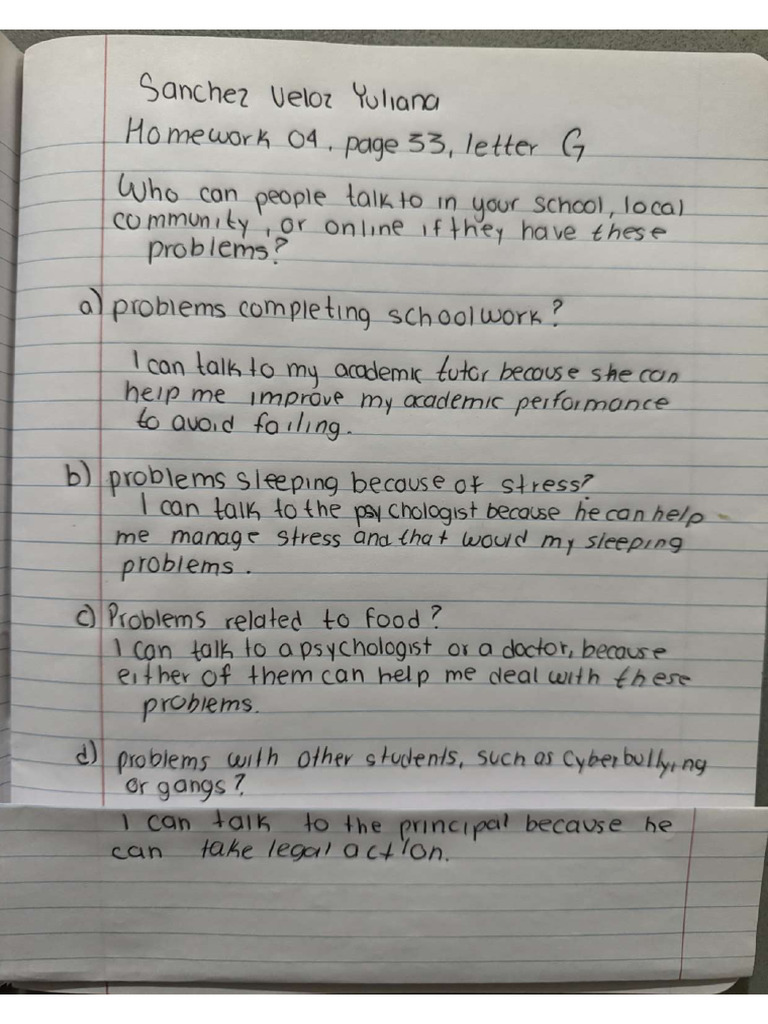 Sanchez Veloz Yuliana
Homework 04, page 33, letter G
Who can people talk to in your school, local
community, or online if they have these
problems?
a) problems completing schoolwork?
I can talk to my academic tutor because she can
help me improve my academic performance
to avoid failing.
b) problems sleeping because of stress?
I can talk to the psychologist because he can help
me manage stress and that would my sleeping
problems.
c) Problems related to food?
I can talk to a psychologist or a doctor, because
either of them can help me deal with these
problems.
d) problems with other students, such as cyberbullying
or gangs?
I can talk to the principal because he
can take legal action.